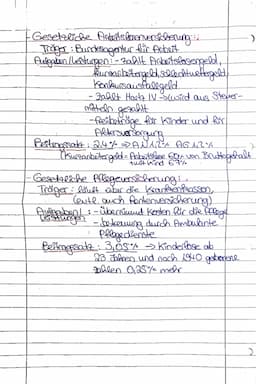 - Gesetzliche Arbeitslosenversicherung:
Träger: Bundesagentur für Arbeit
Aufgaben/Leistungen: - zahlt Arbeitslosengeld,
Kurzarbeitergeld, Schlechtwettergeld,
Konkursausfallgeld
- zahlt Hartz IV → wird aus Steuer-
mitteln gezahlt
für Kinder und für
Altersversorgung
Beitragssatz: 2,4% → AN 1,2% AG 1,2%
(Kurzarbeitergeld Arbeitslose 60% von Bruttogehalt
mit Kind 67%
- Gesetzliche Pflegeversicherung:
Träger: läuft über die Krankenkassen,
(evtl. auch Rentenversicherung)
Aufgaben/ : - Übernimmt Kosten für die Pflege
Leistungen - Betreuung durch Ambulante
Pflegedienste
Beitragssatz: 3,05% → Kinderlose ab
23 Jahren und nach 1940 geborene
zahlen 0,25% mehr